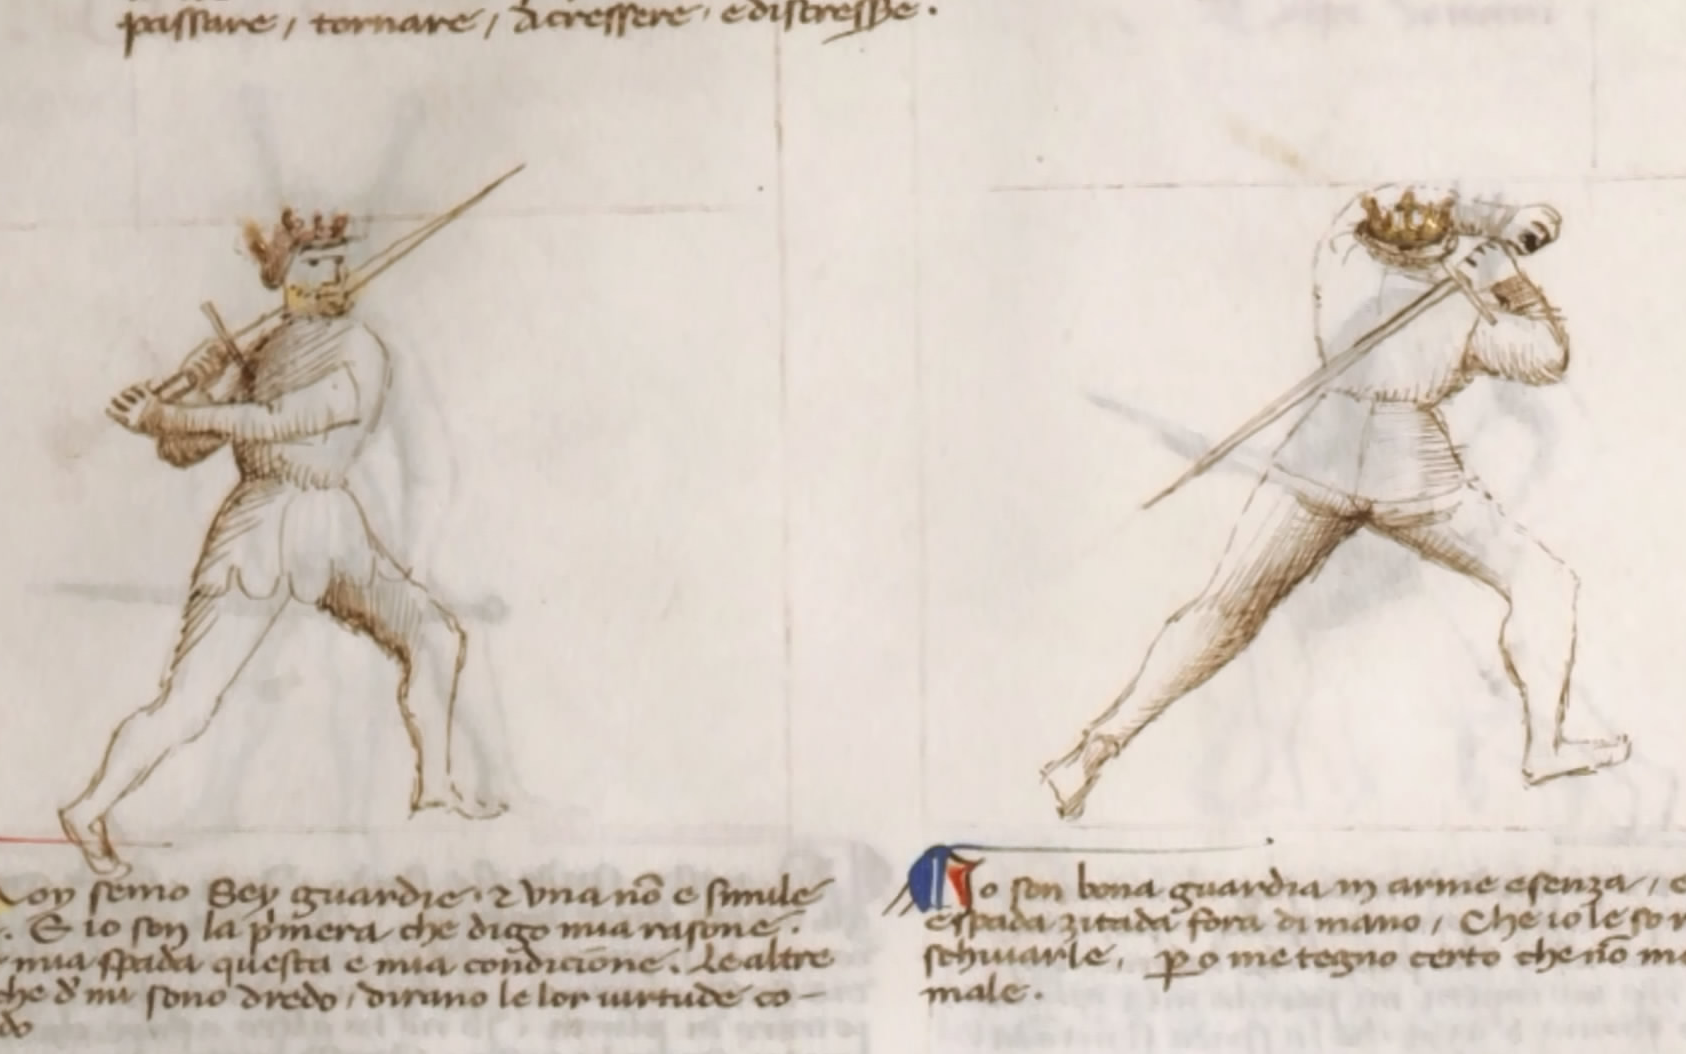 passare / tornare / acressere e discressere .
Noy semo Sey guardie. & vna nō e simile
. E io son la p'mera che digo mia rasone.
mia spada questa e mia condicione. Le altre
che d' mi sono dredo / dirano le lor uirtude co-
do
Io son bona guardia in arme e senza / e
e spada zitada fora di mano / Che io le so r
schiuarle, p o me tegno certo che nō
male.